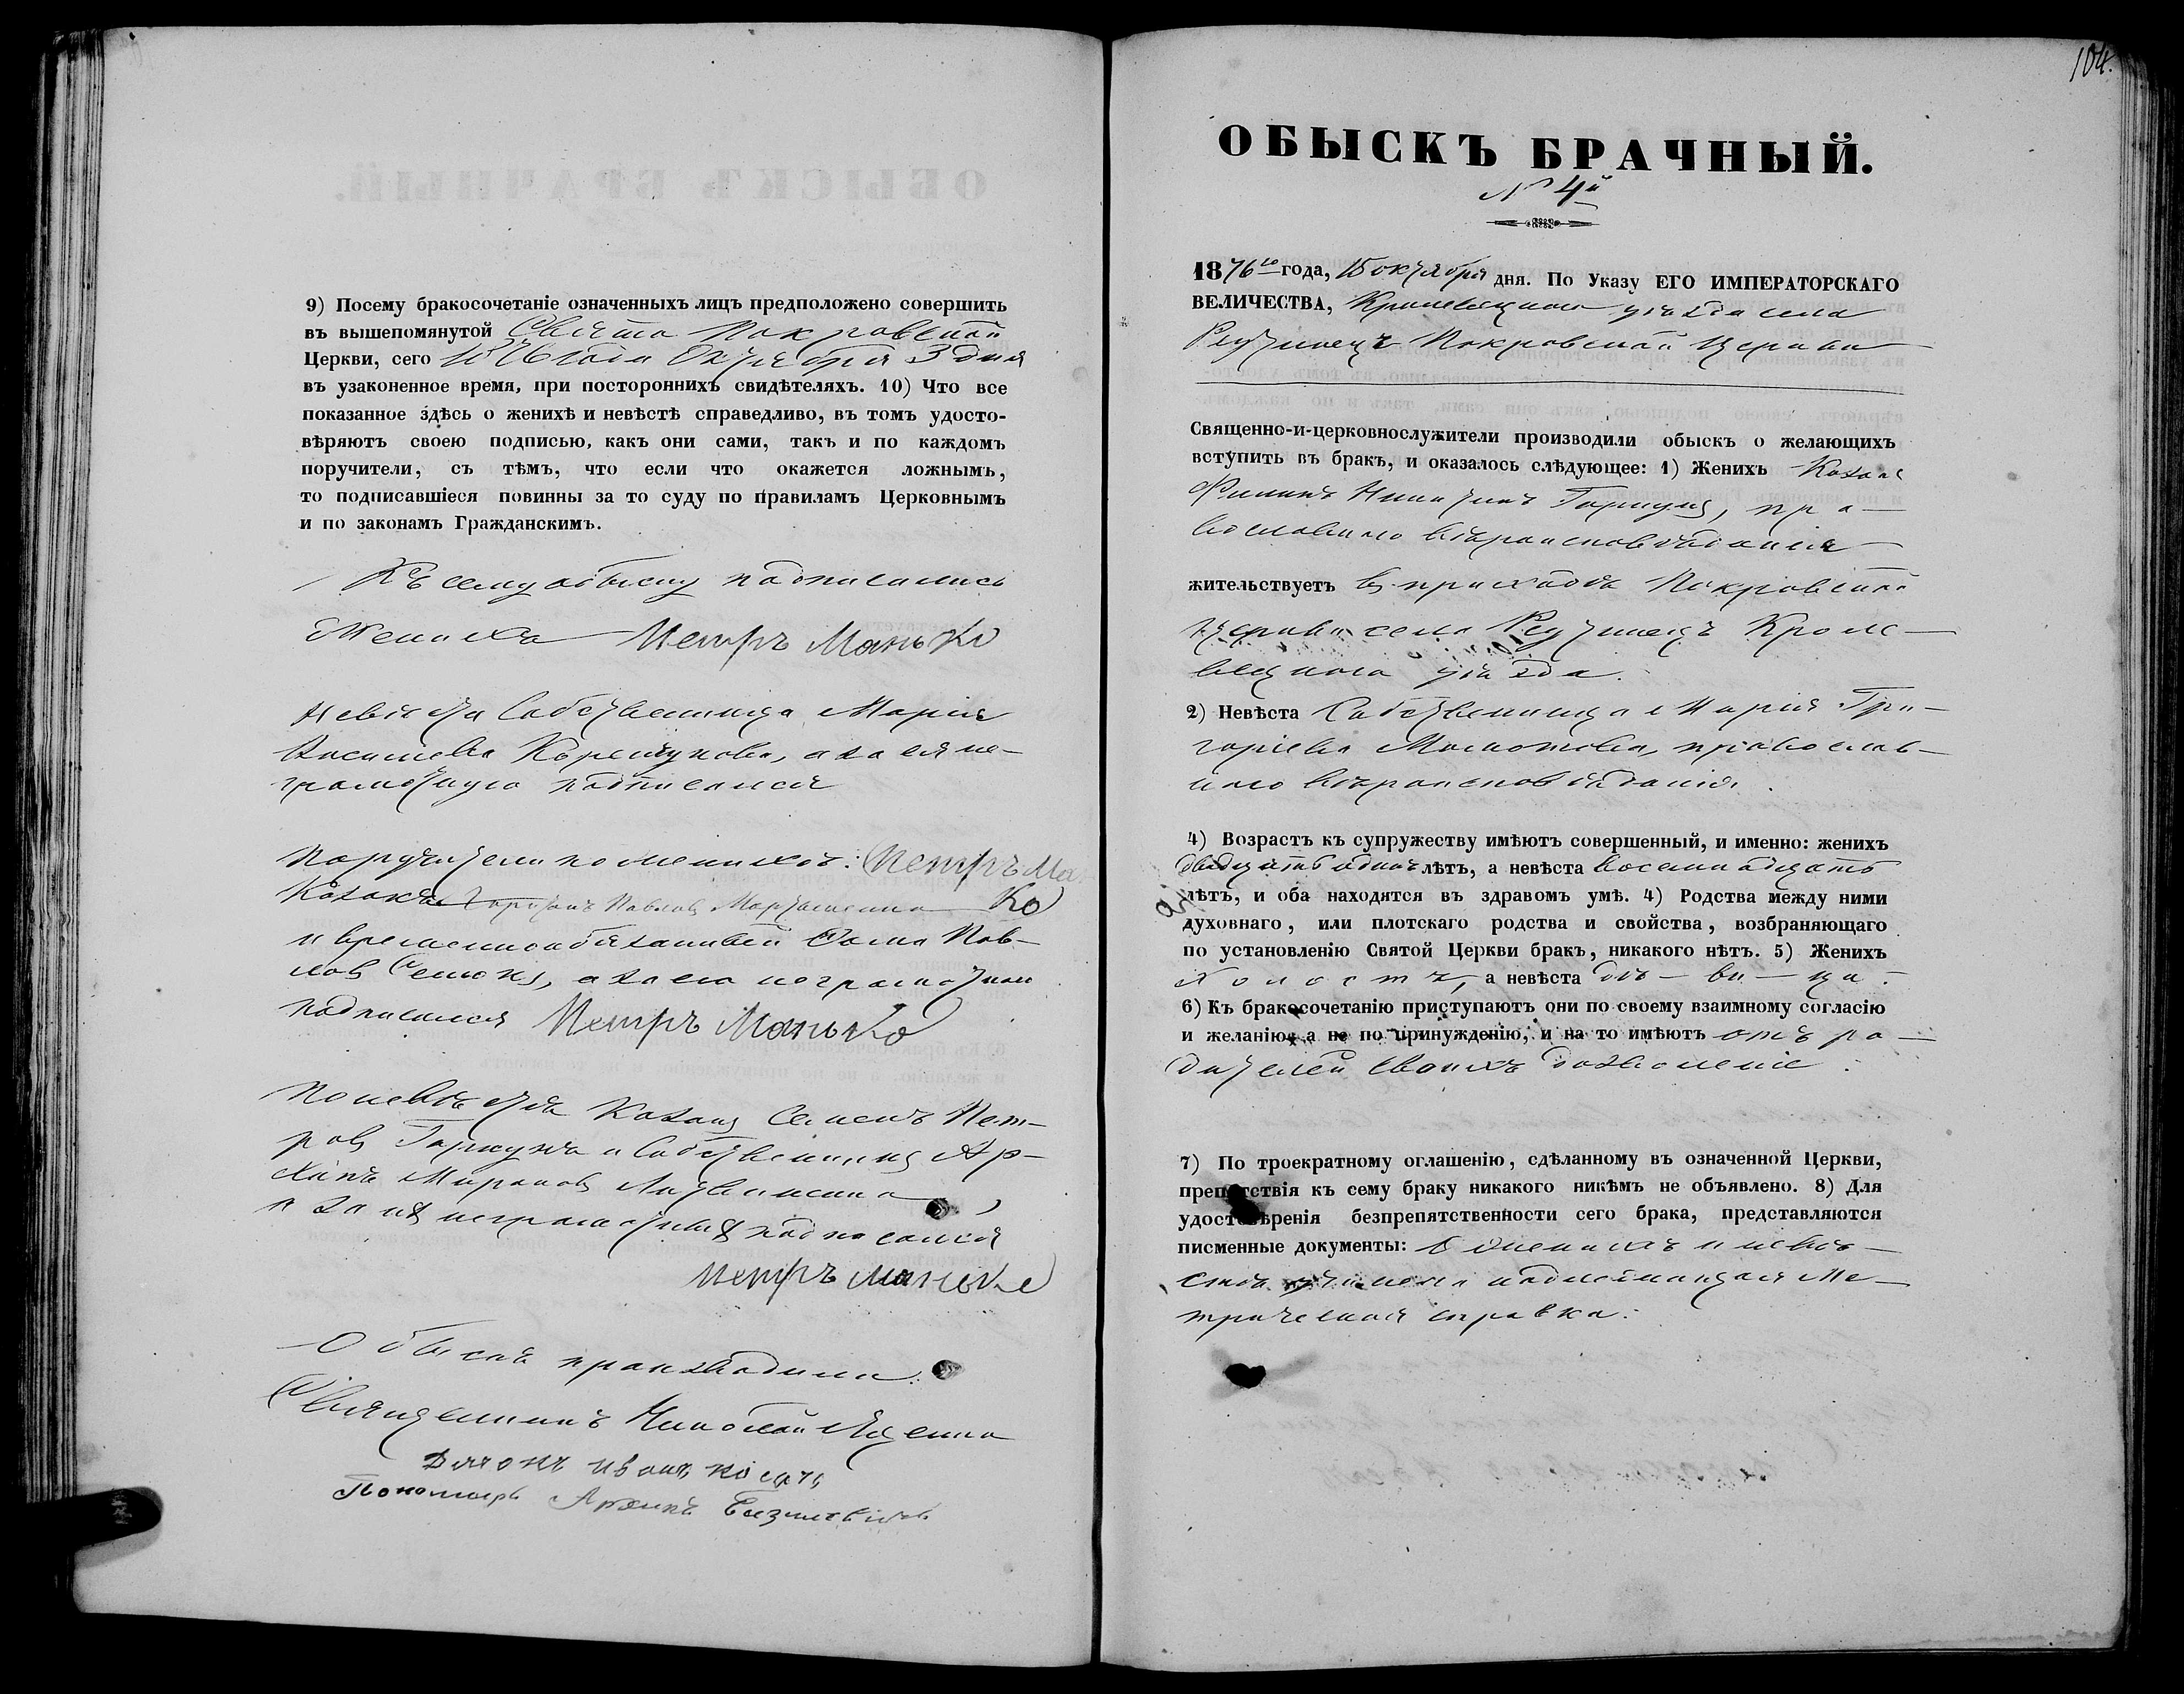 9) Посему бракосочетаніе означенныхъ лицъ предположено совершить
въ вышепомянутой Свято Покровской
Церкви, сего 1876 года Октября 3 дня
въ узаконенное время, при постороннихъ свидѣтеляхъ. 10) Что все
показанное здѣсь о женихѣ и невѣстѣ справедливо, въ томъ удосто-
вѣряютъ своею подписью, какъ они сами, такъ и по каждомъ
поручители, съ тѣмъ, что если что окажется ложнымъ,
то подписавшіеся повинны за то суду по правиламъ Церковнымъ
и по законамъ Гражданскимъ.
Къ сему обыску подписались
Жениха Петръ Манько
Невѣста Собственница Марія
Васильева, а за ея не-
грамотную подписался
Поручители по женихѣ: Петръ Ма
Козакъ Павловъ Ко
и временнообязанный Фома Пав-
ловъ, а за его неграмотнаго
подписался Петръ Манько
По невѣстѣ Козакъ Семенъ Пет-
ровъ Горкуша и Собственникъ Ар-
хипъ Мироновъ
а за нихъ неграмотныхъ подписался
Петръ Манько
Обыскъ производили
Священникъ Николай Яценко
Дячокъ Иванъ
Пономарь
104.
ОБЫСКЪ БРАЧНЫЙ.
№ 4й
1876го года, 15 октября дня. По Указу ЕГО ИМПЕРАТОРСКАГО
ВЕЛИЧЕСТВА, Кролевецкого уѣзда села
Ретинецъ Покровской Церкви
Священно-и-церковнослужители производили обыскъ о желающихъ
вступить въ бракъ, и оказалось слѣдующее: 1) Женихъ Козакъ
Филипъ Никитинъ Горкуша, пра-
вославнаго вѣроисповѣданія
жительствуетъ въ приходѣ Покровской
церкви села Ретинецъ Кроле-
вецкого уѣзда.
2) Невѣста Собственница Марія Гри-
горіева, православ-
наго вѣроисповѣданія.
4) Возрастъ къ супружеству имѣютъ совершенный, и именно: женихъ
двадцать одинъ лѣтъ, а невѣста восемнадцать
лѣтъ, и оба находятся въ здравомъ умѣ. 4) Родства между ними
духовнаго, или плотскаго родства и свойства, возбраняющаго
по установленію Святой Церкви бракъ, никакого нѣтъ. 5) Женихъ
холостъ, а невѣста дѣ-ви-ца.
6) Къ бракосочетанію приступаютъ они по своему взаимному согласію
и желанію, а не по принужденію, и на то имѣютъ отъ ро-
дителей своихъ дозволеніе.
7) По троекратному оглашенію, сдѣланному въ означенной Церкви,
препятствія къ сему браку никакого никѣмъ не объявлено. 8) Для
удостовѣренія безпрепятственности сего брака, представляются
писменные документы: О женихѣ и невѣ-
стѣ учинена надлежащая Ме-
трическая справка.